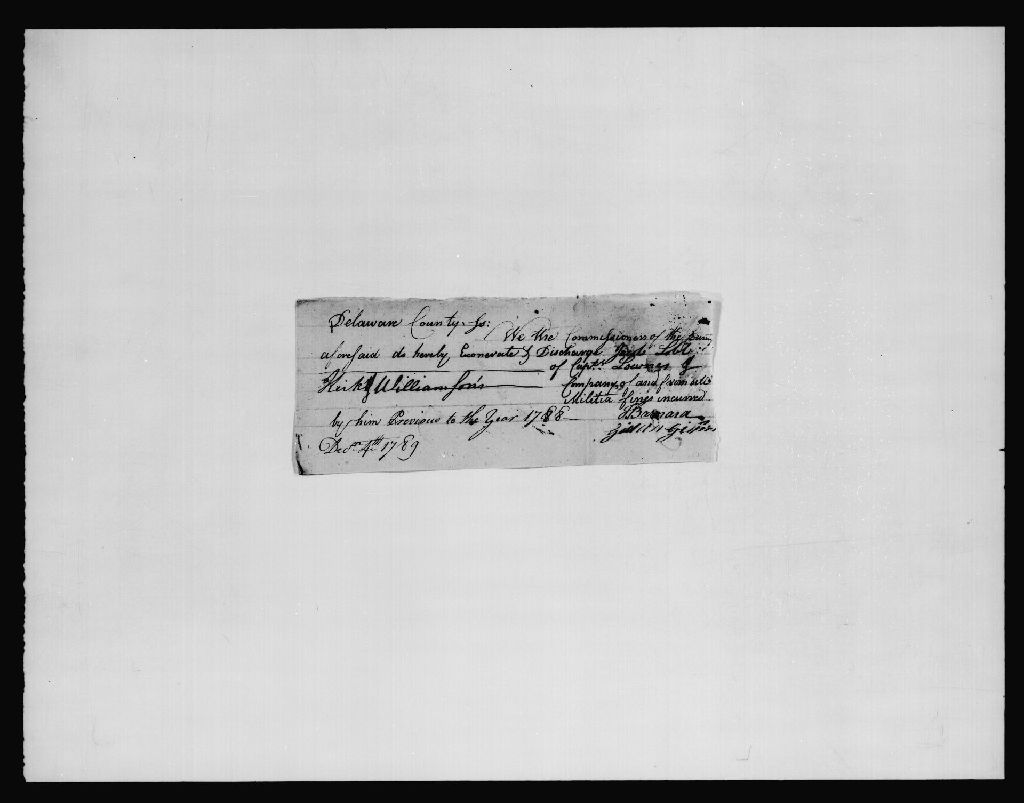 Delaware County ss:
We the Commissioners of the
aforesaid do hereby Exonerate & Discharge
of Capt. Lownes &
Kirk & Williamson's Company of and from all
Militia fines incurred
by him Previous to the Year 1788
Barnard
Decr. 4th 1789 Gideon